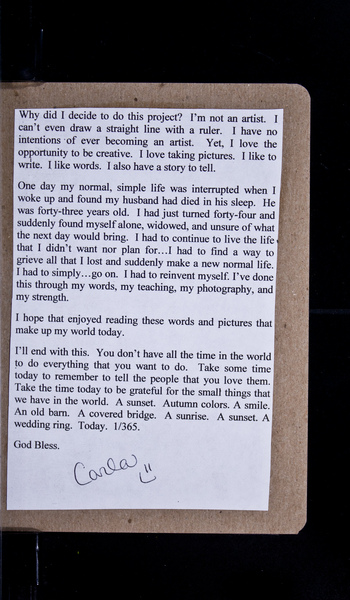 Why did I decide to do this project? I'm not an artist. I
can't even draw a straight line with a ruler. I have no
intentions of ever becoming an artist. Yet, I love the
opportunity to be creative. I love taking pictures. I like to
write. I like words. I also have a story to tell.
One day my normal, simple life was interrupted when I
woke up and found my husband had died in his sleep. He
was forty-three years old. I had just turned forty-four and
suddenly found myself alone, widowed, and unsure of what
the next day would bring. I had to continue to live the life
that I didn't want nor plan for…I had to find a way to
grieve all that I lost and suddenly make a new normal life.
I had to simply…go on. I had to reinvent myself. I've done
this through my words, my teaching, my photography, and
my strength.
I hope that enjoyed reading these words and pictures that
make up my world today.
I'll end with this. You don't have all the time in the world
to do everything that you want to do. Take some time
today to remember to tell the people that you love them.
Take the time today to be grateful for the small things that
we have in the world. A sunset. Autumn colors. A smile.
An old barn. A covered bridge. A sunrise. A sunset. A
wedding ring. Today. 1/365.
God Bless.
Carla